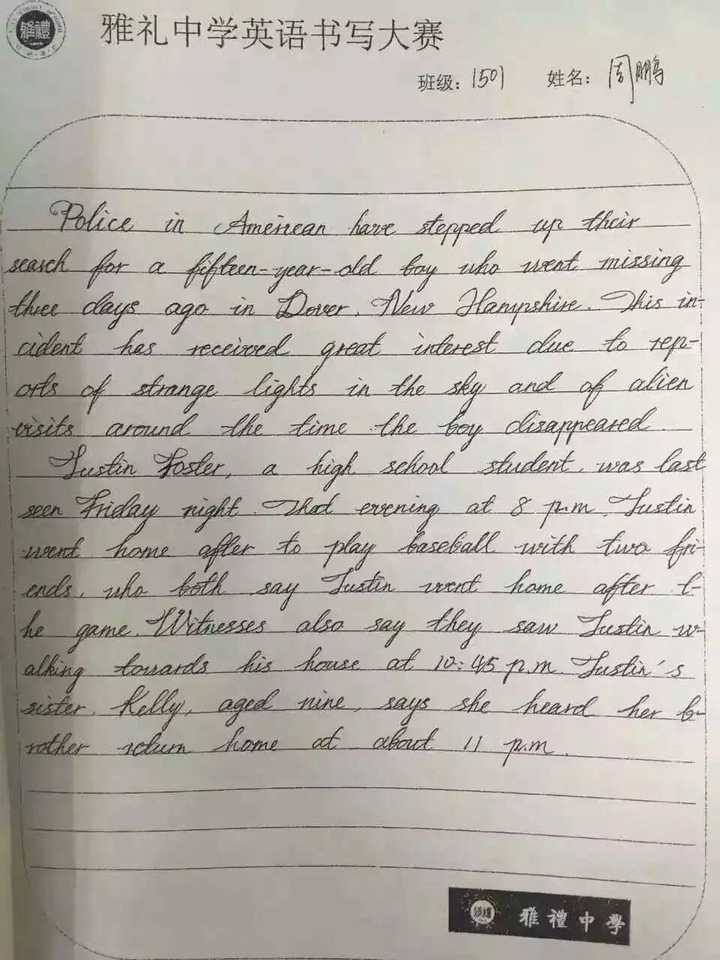 雅礼中学英语书写大赛
班级: 1501 姓名: 周鹏
Police in American have stepped up their
search for a fifteen-year-old boy who went missing
three days ago in Dover, New Hampshire. This in-
cident has received great interest due to rep-
orts of strange lights in the sky and of alien
visits around the time the boy disappeared.
Justin Foster, a high school student, was last
seen Friday night. That evening at 8 p.m. Justin
went home after to play baseball with two fri-
ends, who both say Justin went home after t-
he game. Witnesses also say they saw Justin w-
alking towards his house at 10:45 p.m. Justin's
sister, Kelly, aged nine, says she heard her b-
rother return home at about 11 p.m.
雅禮中學